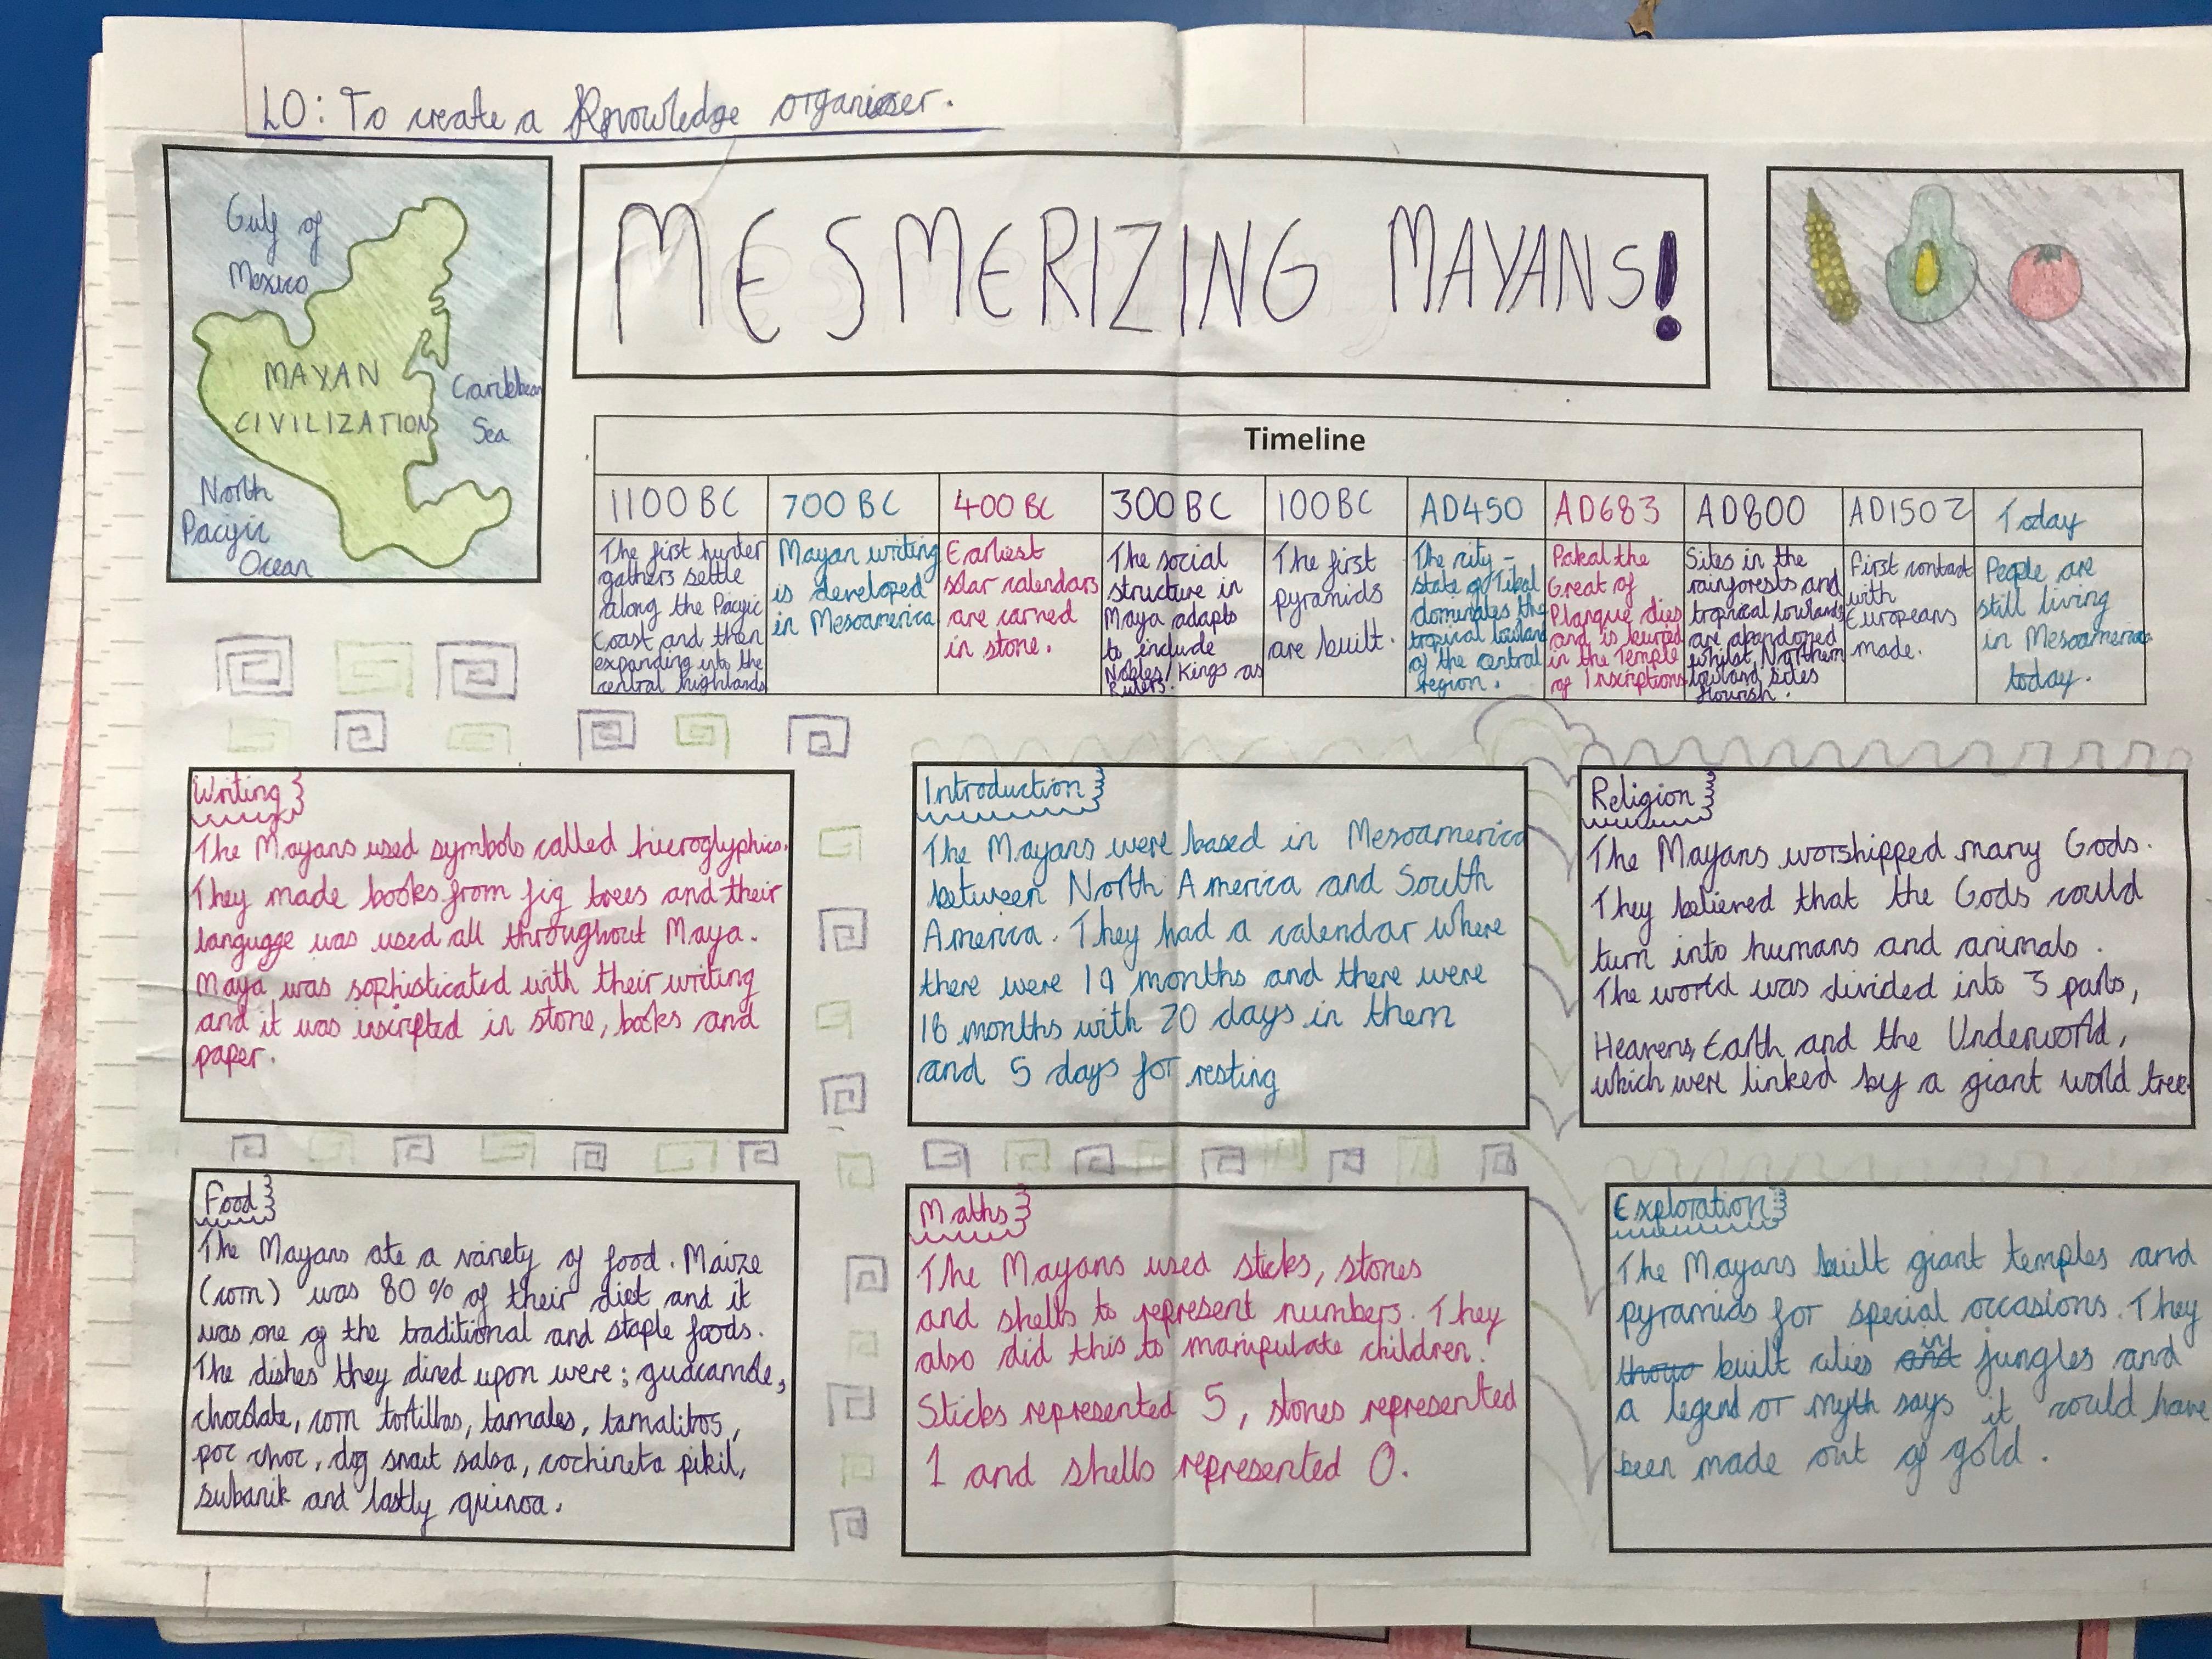 LO: To create a Knowledge organiser.
Gulf of
Mexico
MAYAN
CIVILIZATION
Caribbean
Sea
North
Pacific
Ocean
MESMERIZING MAYANS!
Timeline
1100 BC
The first hunter
gathers settle
along the Pacific
Coast and then
expanding into the
central highlands
700 BC
Mayan writing
is developed
in Mesoamerica
400 BC
Earliest
solar calendars
are carved
in stone.
300 BC
The social
structure in
Maya adapts
to include
Nobles/Kings as
Rulers.
100 BC
The first
pyramids
are built.
AD450
The city-
state of Tikal
dominates the
tropical lowland
of the central
region.
AD683
Pakal the
Great of
Plangue dies
and is buried
in the Temple
of Inscriptions
AD800
Sites in the
rainforests and
tropical lowlands
are abandoned
whilst Northern
lowland sites
flourish.
AD1502
First contact
with
Europeans
made.
Today
People are
still living
in Mesoamerica
today.
Writing
The Mayans used symbols called hieroglyphics.
They made books from fig trees and their
langugge was used all throughout Maya.
Maya was sophisticated with their writing
and it was inscripted in stone, books and
paper.
Introduction
The Mayans were based in Mesoamerica
between North America and South
America. They had a calendar where
there were 19 months and there were
18 months with 20 days in them
and 5 days for resting
Religion
The Mayans worshipped many Gods.
They believed that the Gods could
turn into humans and animals.
The world was divided into 3 parts,
Heavens, Earth and the Underworld,
which were linked by a giant world tree.
Food
The Mayans ate a variety of food. Maize
(corn) was 80% of their diet and it
was one of the traditional and staple foods.
The dishes they dined upon were; guacamole,
chocolate, corn tortillas, tamales, tamalitos,
poc choc, dog snout salsa, cochineta pikil,
subanik and lastly quinoa.
Maths
The Mayans used sticks, stones
and shells to represent numbers. They
also did this to manipulate children.
Sticks represented 5, stones represented
1 and shells represented 0.
Exploration
The Mayans built giant temples and
pyramids for special occasions. They
built cities in jungles and
a legend or myth says it could have
been made out of gold.